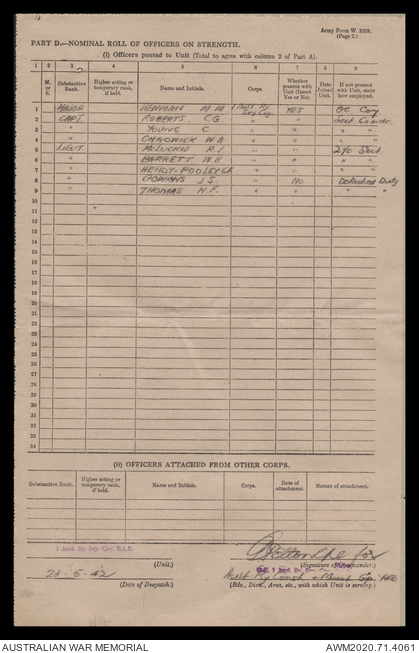 Army Form W. 3008.
(Page 2.)
PART D.—NOMINAL ROLL OF OFFICERS ON STRENGTH.
(i) Officers posted to Unit (Total to agree with column 2 of Part A).
1 2 3 4 5 6 7 8 9
M. or S. Substantive Rank. Higher acting or temporary rank, if held. Name and Initials. Corps. Whether present with Unit (Insert Yes or No). Date Joined Unit. If not present with Unit, state how employed.
1 MAJOR NEWMAN M M 1 Aust. Ry. Svy Coy. YES OC Coy
2 CAPT. ROBERTS C G " " Sect. Comdr.
3 " YOUNG C " " " "
4 " CHADWICK W A " " " "
5 LIEUT McLUCKIE R J " " 2i/c Sect
6 " BARRETT W H " " " "
7 " HENDY-POOLEY " " " "
8 " GOWANS J S " No Detached Duty
9 " THOMAS H. F. " " " "
10
11
12
13
14
15
16
17
18
19
20
21
22
23
24
25
26
27
28
29
30
31
32
33
34
(ii) OFFICERS ATTACHED FROM OTHER CORPS.
Substantive Rank. Higher acting or temporary rank, if held. Name and Initials. Corps. Date of attachment. Nature of attachment.
1 Aust. Ry. Svy. Coy. R.A.E.
(Unit.) (Signature of Commander.)
23-5-42 Aust Ry Const + Maint Gp. RAE
(Date of Despatch.) (Bde., Divn., Area, etc., with which Unit is serving.)
AUSTRALIAN WAR MEMORIAL AWM2020.71.4061